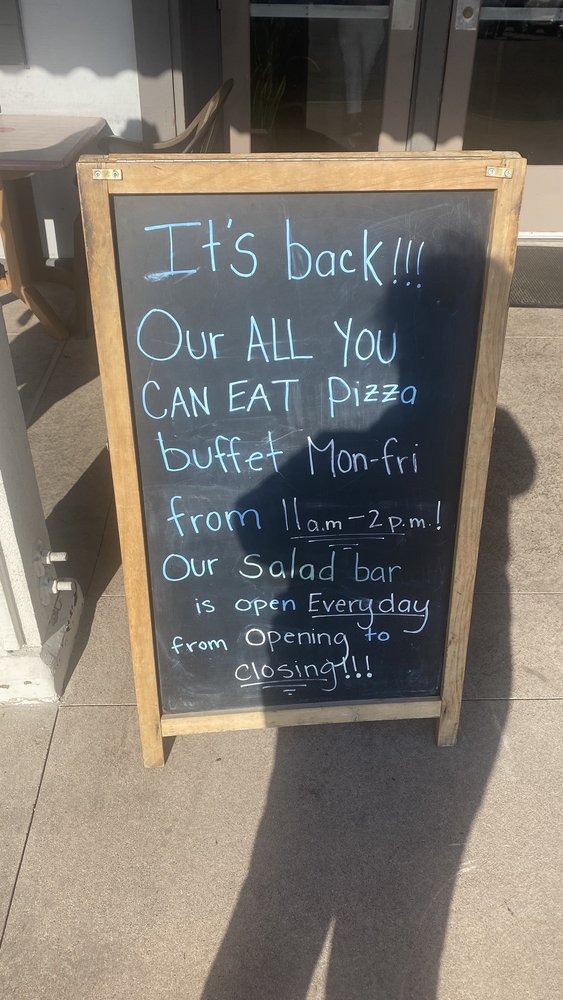 It's back!!!
Our ALL YOU
CAN EAT Pizza
buffet Mon-fri
from 11a.m-2p.m.!
Our Salad bar
is open Everyday
from Opening to
closing!!!